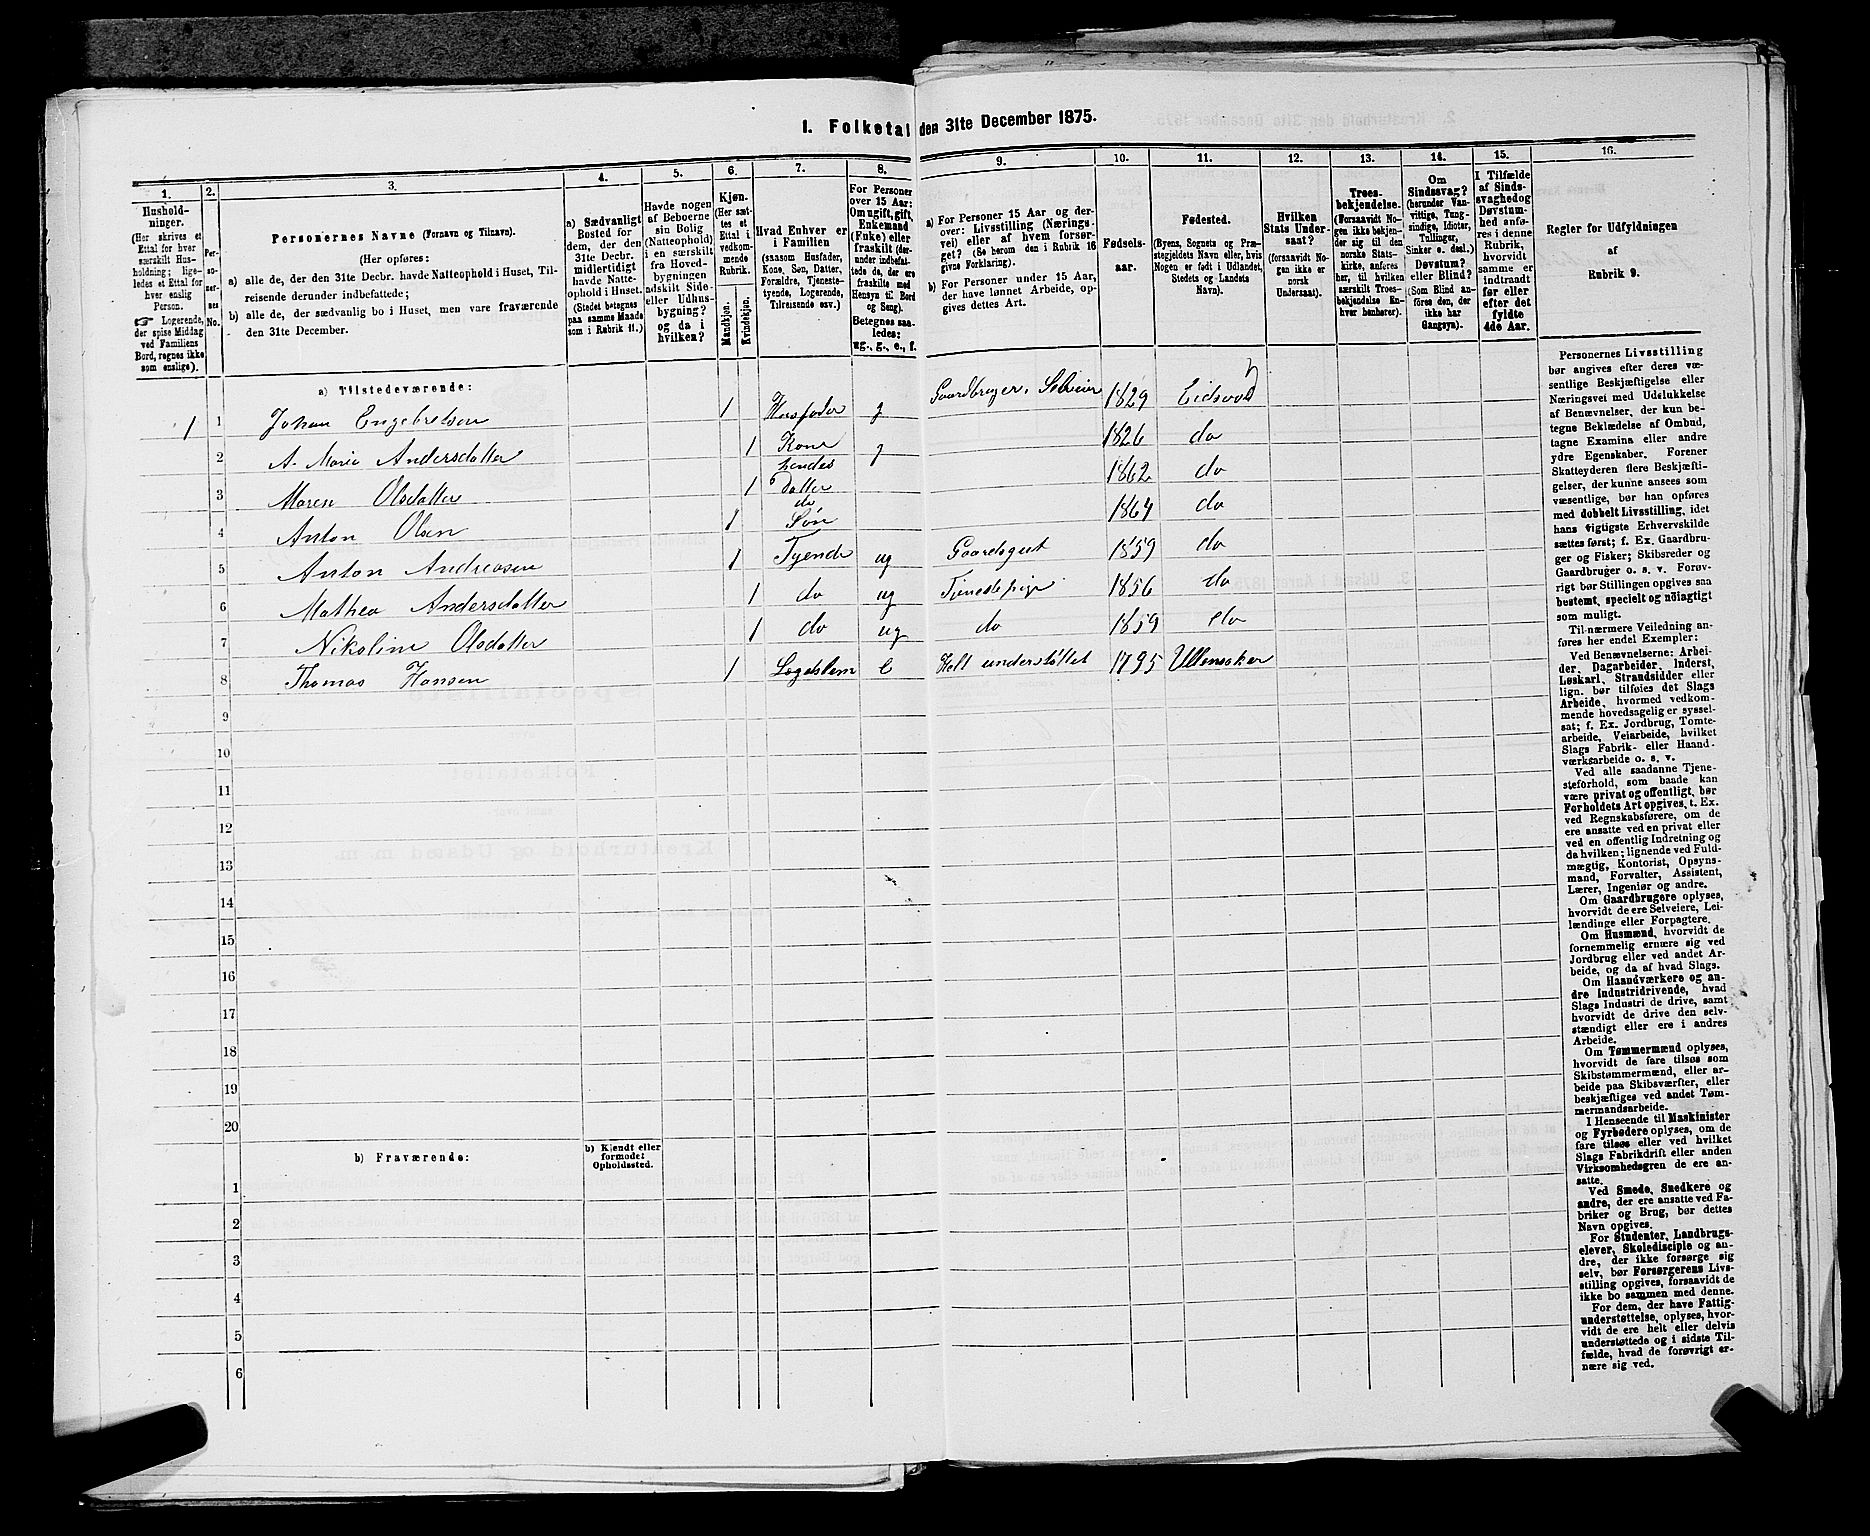 I. Folketal den 31te December 1875.
1. 2. 3. 4. 5. 6. 7. 8. 9. 10. 11. 12. 13. 14. 15. 16.
Hushold-
ninger.
(Her skrives et
Ettal for hver
særskilt Hus-
holdning; lige-
ledes et Ettal for
hver enslig
Person.
☞ Logerende,
der spise Middag
ved Familiens
Bord, regnes ikke
som enslige).
Per-
so-
ner-
nes
No.
Personernes Navne (Fornavn og Tilnavn).
(Her opføres:
a) alle de, der den 31te Decbr. havde Natteophold i Huset, Til-
reisende derunder indbefattede;
b) alle de, der sædvanlig bo i Huset, men vare fraværende
den 31te December.
a) Sædvanligt
Bosted for
dem, der den
31te Decbr.
midlertidigt
havde Natte-
ophold i Huset.
(Stedet betegnes
paa samme Maade
som i Rubrik 11.)
Havde nogen
af Beboerne
sin Bolig
(Natteophold)
i en særskilt
fra Hoved-
bygningen
adskilt Side-
eller Udhus-
bygning?
og da i
hvilken?
Kjøn.
(Her sæt-
tes et
Ettal i
vedkom-
mende
Rubrik.
Mandkjøn.
Kvindekjøn.
Hvad Enhver er
i Familien
(saasom Husfader,
Kone, Søn, Datter,
Forældre, Tjeneste-
tyende, Logerende,
Tilreisende osv.)
For Personer
over 15 Aar:
Om ugift, gift,
Enkemand
(Enke) eller
fraskilt (der-
under indbefat-
tede de, der ere
fraskilte med
Hensyn til Bord
og Seng).
Betegnes saa-
ledes:
ug., g., e., f.
a) For Personer 15 Aar og der-
over: Livsstilling (Nærings-
vei) eller af hvem forsør-
get? (Se herom den i Rubrik 16
givne Forklaring).
b) For Personer under 15 Aar,
der have lønnet Arbeide, op-
gives dettes Art.
Fødsels-
aar.
Fødested.
(Byens, Sognets og Præ-
stegjeldets Navn eller, hvis
Nogen er født i Udlandet,
Stedets og Landets
Navn).
Hvilken
Stats Under-
saat?
(forsaavidt No-
gen ikke er
norsk
Undersaat).
Troes-
bekjendelse.
(Forsaavidt No-
gen ikke bekjen-
der sig til den
norske Stats-
kirke, anføres
her, til hvilken
særskilt Troes-
bekjendelse En-
hver henhører).
Om
Sindssvag?
(herunder Van-
vittige, Tung-
sindige, Idioter,
Tullinger,
Sinker o. desl.)
Døvstum?
eller Blind?
(Som Blind an-
føres den, der
ikke har
Gangsyn).
I Tilfælde
af Sinds-
svaghed og
Døvstum-
hed anfø-
res i denne
Rubrik,
hvorvidt
samme er
indtraadt
før eller
efter det
fyldte
4de Aar.
Regler for Udfyldningen
af
Rubrik 9.
a) Tilstedeværende:
1 1 Johan Engebretsen 1 Husfader g Gaardbruger, Selveier 1829 Eidsvold
2 A. Maria Andersdatter 1 Kone g 1826 do
3 Maren Olsdatter 1 hendes Datter 1862 do
4 Anton Olsen 1 do Søn 1864 do
5 Anton Andreasen 1 Tyende ug Gaardsgut 1859 do
6 Mathea Andersdatter 1 do ug Tjenestepige 1856 do
7 Nikoline Olsdatter 1 do ug do 1859 do
8 Thomas Hansen 1 Lægdslem e Helt understøttet 1795 Ullensaker
9
10
11
12
13
14
15
16
17
18
19
20
b) Fraværende:
b) Kjendt eller
formodet
Opholdssted.
1
2
3
4
5
6
Personernes Livsstilling
bør angives efter deres væ-
sentlige Beskjæftigelse eller
Næringsvei med Udelukkelse
af Benævnelser, der kun be-
tegne Beklædelse af Ombud,
tagne Examina eller andre
ydre Egenskaber. Forener
Skatteyderen flere Beskjæfti-
gelser, der kunne ansees som
væsentlige, bør han opføres
med dobbelt Livsstilling, idet
hans vigtigste Erhvervskilde
sættes først; f. Ex. Gaardbru-
ger og Fisker; Skibsreder og
Gaardbruger o. s. v. Forøv-
rigt bør Stillingen opgives saa
bestemt, specielt og nøiagtigt
som muligt.
Til nærmere Veiledning an-
føres her endel Exempler:
Ved Benævnelserne: Arbei-
der, Dagarbeider, Inderst,
Løskarl, Strandsidder eller
lign. bør tilføies det Slags
Arbeide, hvormed vedkom-
mende hovedsagelig er syssel-
sat; f. Ex. Jordbrug, Tomte-
arbeide, Veiarbeide, hvilket
Slags Fabrik- eller Haand-
værksarbeide o. s. v.
Ved alle saadanne Tjene-
steforhold, som baade kan
være privat og offentligt, bør
Forholdets Art opgives, t. Ex.
ved Regnskabsførere, om de
ere ansatte ved en privat eller
ved en offentlig Indretning og
da hvilken; lignende ved Fuld-
mægtig, Kontorist, Opsyns-
mand, Forvalter, Assistent,
Lærer, Ingeniør og andre.
Om Gaardbrugere oplyses,
hvorvidt de ere Selveiere, Lei-
lændinge eller Forpagtere.
Om Husmænd, hvorvidt de
fornemmelig ernære sig ved
Jordbrug eller ved andet Ar-
beide, og da af hvad Slags.
Om Haandværkere og an-
dre Industridrivende, hvad
Slags Industri de drive, samt
hvorvidt de drive den selv-
stændigt eller ere i andres
Arbeide.
Om Tømmermænd oplyses,
hvorvidt de fare tilsøs som
Skibstømmermænd, eller ar-
beide paa Skibsværfter, eller
beskjæftiges ved andet Tøm-
mermandsarbeide.
I Henseende til Maskinister
og Fyrbødere oplyses, om de
fare tilsøs eller ved hvilket
Slags Fabrikdrift eller anden
Virksomhedsgren de ere an-
satte.
Ved Smede, Snedkere og
andre, der ere ansatte ved Fa-
briker og Brug, bør dettes
Navn opgives.
For Studenter, Landbrugs-
elever, Skoledisciple og an-
dre, der ikke forsørge sig
selv, bør Forsørgerens Livs-
stilling opgives, forsaavidt de
ikke bo sammen med denne.
For dem, der have Fattig-
understøttelse, oplyses, hvor-
vidt de ere helt eller delvis
understøttede og i sidste Til-
fælde, hvad de forøvrigt er-
nære sig ved.